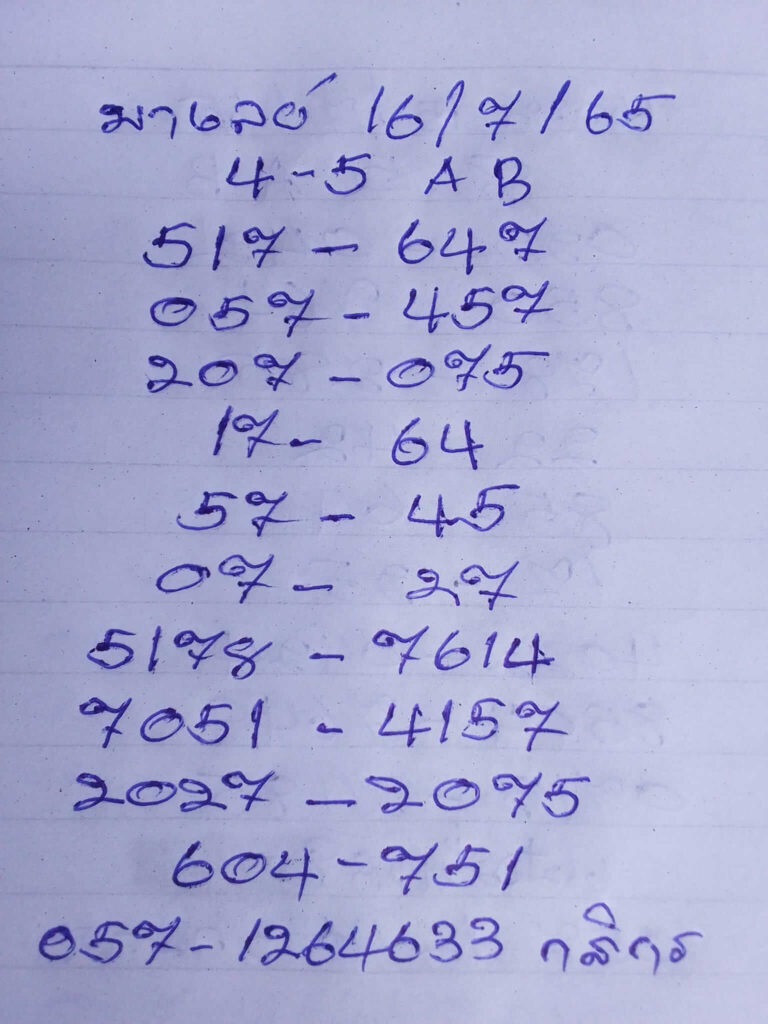 มาเลย์ 16/7/65
4-5 A B
517 - 647
057 - 457
207 - 075
17 - 64
57 - 45
07 - 27
5178 - 7614
7051 - 4157
2027 - 2075
604 - 751
057-1264633 กสิกร